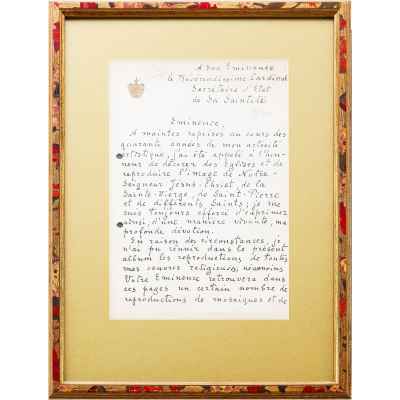 A Son Eminence
le Révérendissime Cardinal
Secrétaire d'Etat
de Sa Sainteté
Eminence,
A maintes reprises au cours des
quarante années de mon activité
artistique, j'ai été appelé à l'hon-
neur de décorer des Eglises et de
reproduire l'image de Notre-
Seigneur Jésus-Christ, de la
Sainte-Vierge, de Saint-Pierre
et de différents Saints; je me
suis toujours efforcé d'exprimer
ainsi, d'une manière vivante, ma
profonde dévotion.
En raison des circonstances, je
n'ai pu réunir dans le présent
album les reproductions de toutes
mes œuvres religieuses, néanmoins
Votre Eminence retrouvera dans
ces pages un certain nombre de
reproductions de mosaïques et de